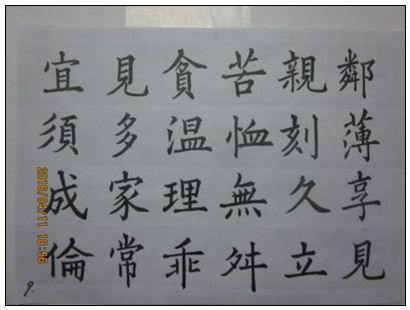 宜見貪苦親鄰
須多温恤刻薄
成家理無久享
倫常乖舛立見
9.